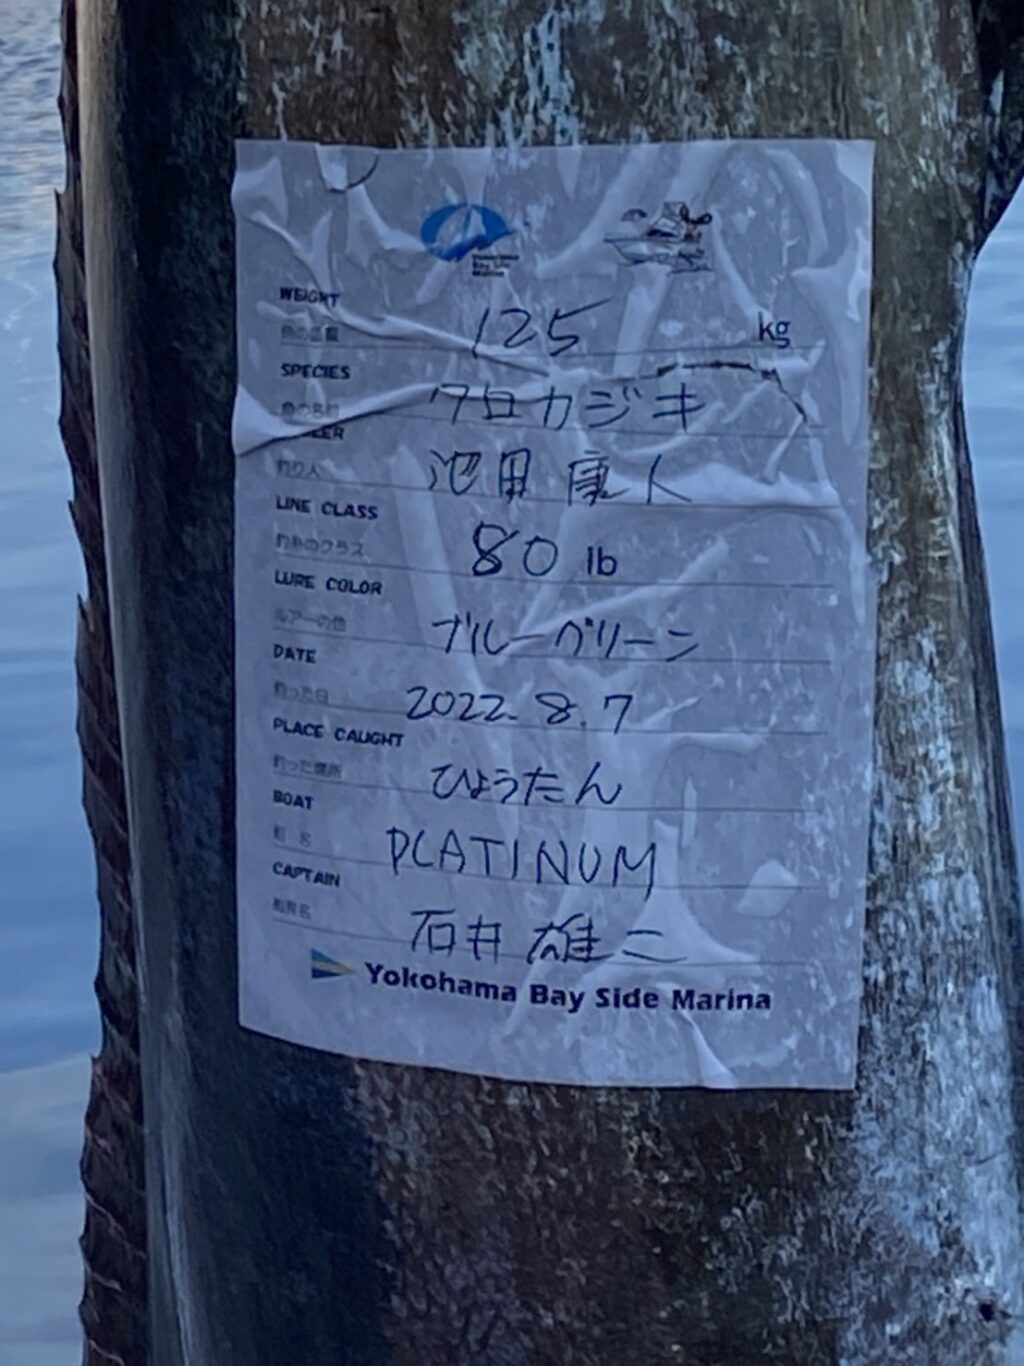 Yokohama
Bay Side
Marina
WEIGHT
魚の重量 125 kg
SPECIES
魚の名前 クロカジキ
釣り人 池田 康人
LINE CLASS
釣糸のクラス 80 lb
LURE COLOR
ルアーの色 ブルーグリーン
DATE
釣った日 2022.8.7
PLACE CAUGHT
釣った場所 ひょうたん
BOAT
船名 PLATINUM
CAPTAIN
船長名 石井 雄二
Yokohama Bay Side Marina